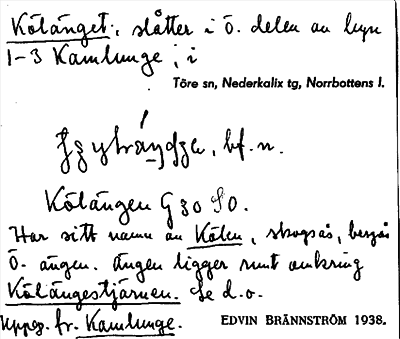 Kölänget, slåtter i ö. delen av byn
1-3 Kamlunge; i
Töre sn, Nederkalix tg, Norrbottens l.
bf. n.
Kölängen G 30 SO.
Har sitt namn av Kölen, skogsås, bergås
Ö. ängen. Ängen ligger runt omkring
Kölängestjärnen. Se d. o.
Uppg. fr. Kamlunge.
EDVIN BRÄNNSTRÖM 1938.